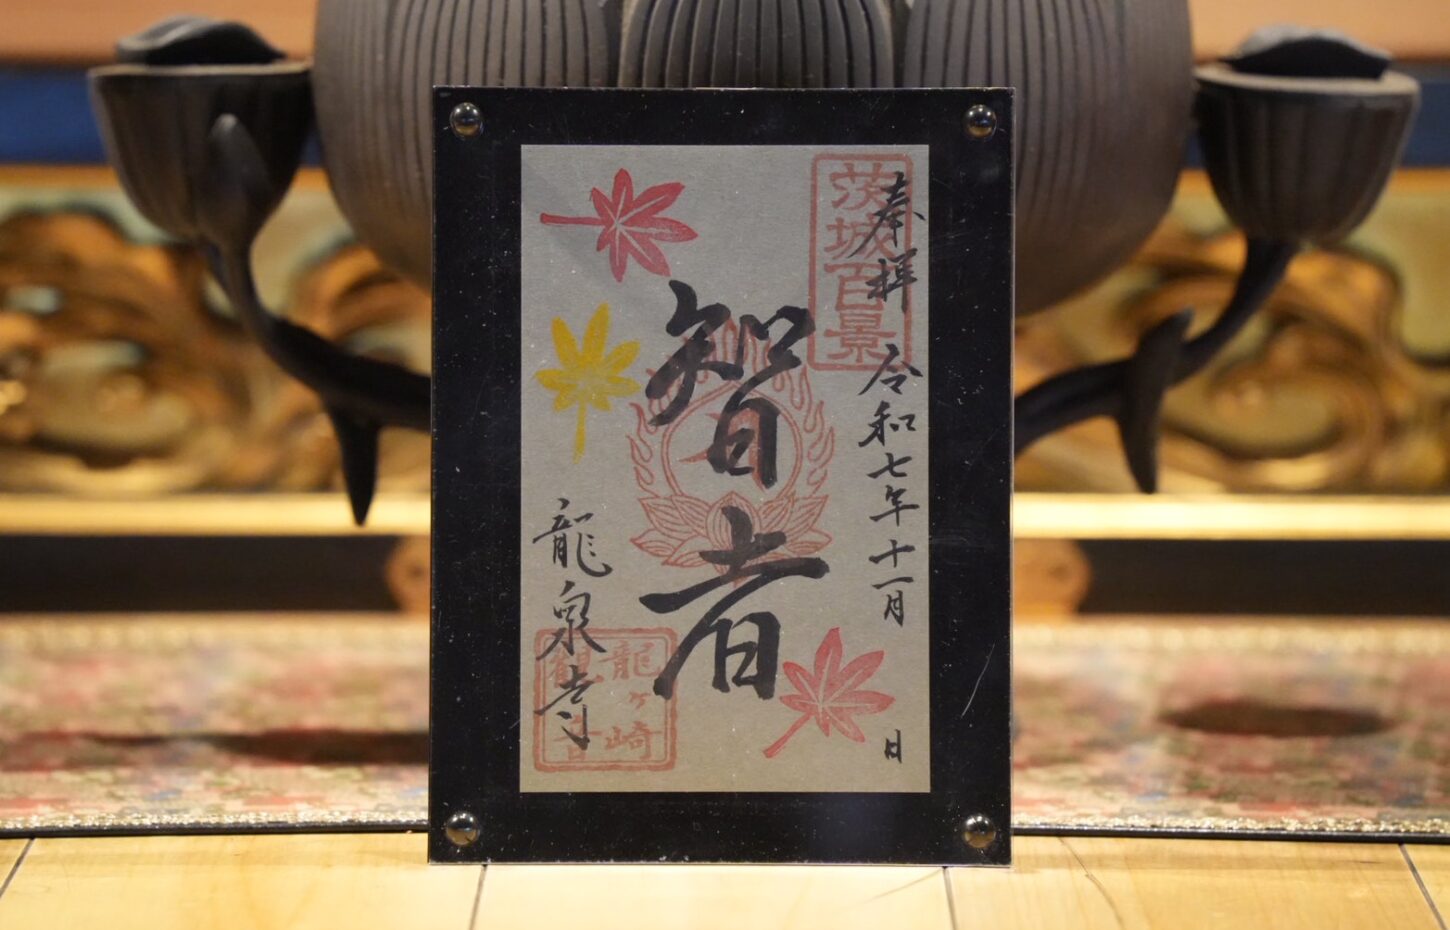 奉拝
令和七年十一月 日
茨城百景
智者
龍泉寺
龍ヶ崎
観音